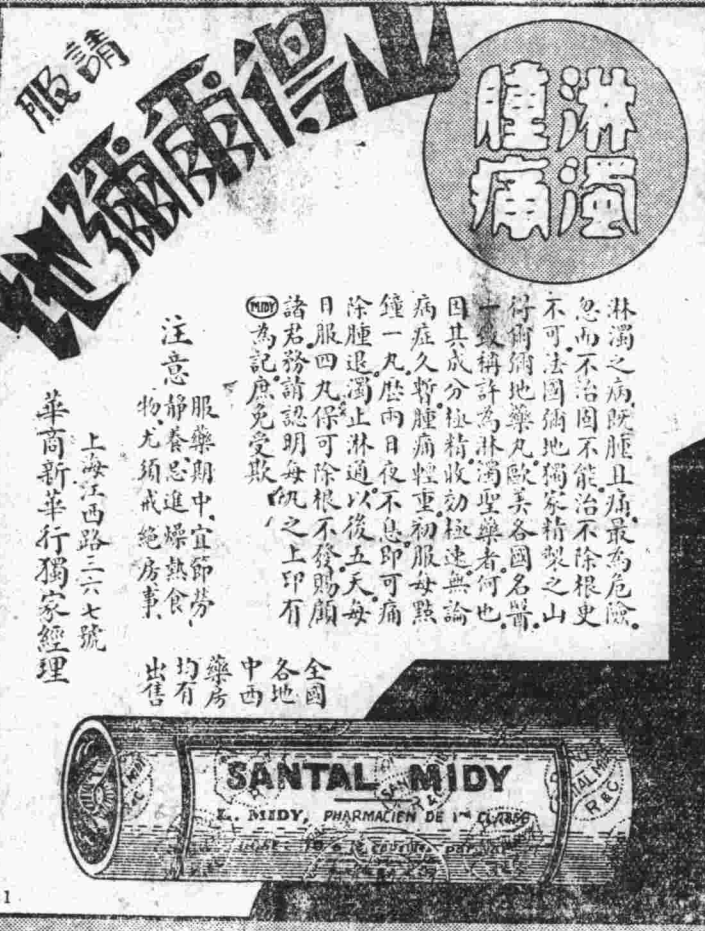 淋濁
腫痛
請服
山得爾彌地
淋濁之病.既腫且痛.最為危險.
忽而不治固不能治不除根更
不可.法國彌地獨家精製之山
得爾彌地藥丸.歐美各國名醫.
一致稱許為淋濁聖藥者.何也.
因其成分極精.收効極速.無論
病症久暫.腫痛輕重.初服每點
鐘一丸.歷兩日夜不息.即可痛
除腫退.濁止淋通.以後五天.每
日服四丸.保可除根不發.賜顧
諸君.務請認明每丸之上.印有
MIDY為記.庶免受欺.
注意
服藥期中.宜節勞.
靜養.忌進燥熱食
物.尤須戒絕房事.
全國
各地
中西
藥房
均有
出售
上海江西路三六七號
華商新華行獨家經理
SANTAL MIDY
L. MIDY, PHARMACIEN DE 1re CLASSE
SANTAL MIDY
R & C
1